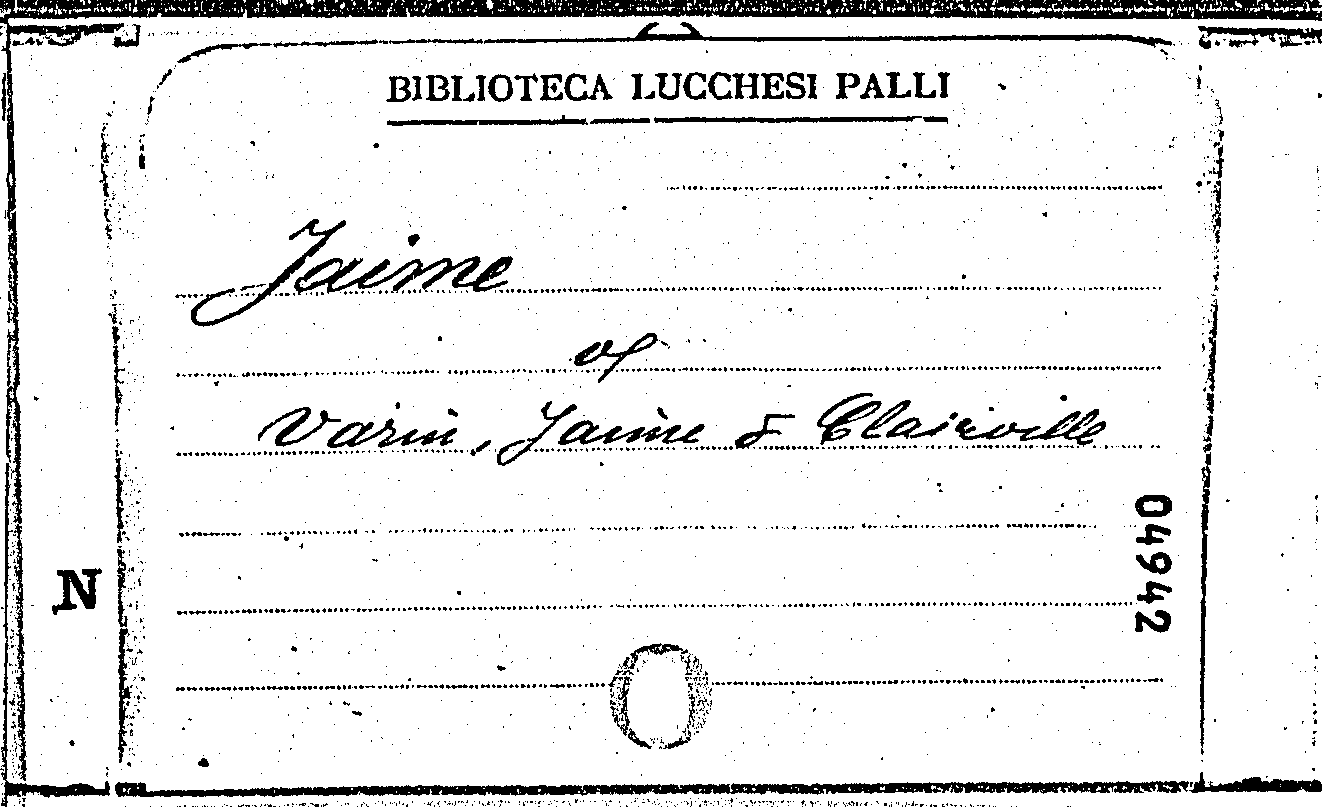 BIBLIOTECA LUCCHESI PALLI
Jaime
of
Varin, Jaime & Clairville
04942
N